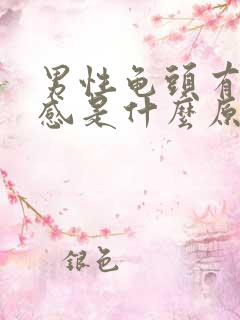 男性龟頭有
感是什麼原
银色